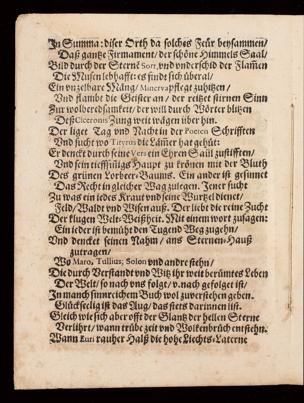 In Summa: diser Orth da solches Feür beysammen/
Daß gantze Firmament/ der schöne Himmels Saal/
Bild durch der Sternē Sort, vnd vnderschid der Flam̃en
Die Musen lebhafft: es findt sich überal/
Ein vnzelbare Mäng/ Minerva pflegt zuhitzen/
Vnd flambt die Geister an/ der reitzet stirnen Sinn
Zur wolberedsamkeit/ der will durch Wörter blitzen
Deß Ciceronis Zung weit wägen über hin.
Der liget Tag vnd Nacht in der Poeten Schrifften
Vnd sucht wo Tityrus die Läm̃er hat gehüt:
Er denckt durch seine Vers ein Ehren Saül zustifften/
Vnd sein tieffsinigs Haupt zu krönen mit der Blüth
Des grünen Lorbeer-Baums. Ein ander ist gesinnet
Das Recht in gleicher Wag zulegen. Jener sucht
Zu was ein iedes Kraut vnd seine Wurtzel dienet
Feld/ Waldt vnd Wisen auß. Der liebt die reine Zucht
Der klugen Welt-Weißheit. Mit einem wort zusagen:
Ein ieder ist bemüht den Tugend Weg zugehn/
Vnd dencket seinen Nahm/ ans Sternen-Hauß
zutragen/
Wo Maro, Tullius, Solon vnd andre stehn/
Die durch Verstandt vnd Witz ihr weit berümtes Leben
Der Welt/ so nach vns folgt/ v. nach gefolget ist/
In manch sinnreichem Buch wol zuverstehen geben.
Glückseelig ist das Aug/ das stets darinnen list.
Gleich wie sich aber offt der Glantz der hellen Sterne
Verliehrt/ wann trübe zeit vnd Wolkenbrüch entstehn.
Wann Euri rauher Halß die hohe Liechts-Laterne